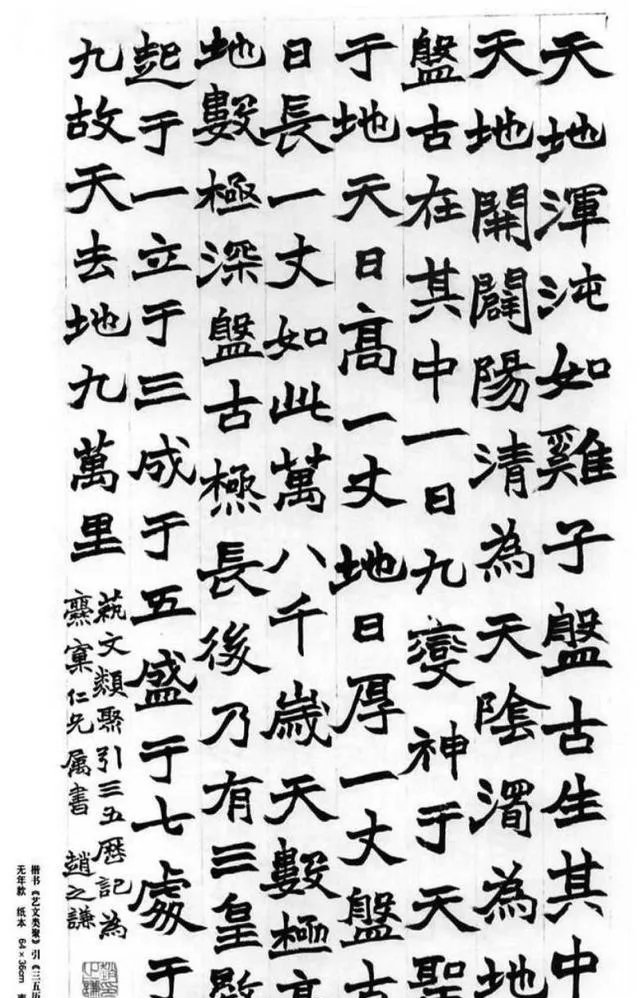 天地渾沌如雞子盤古生其中
天地開闢陽清為天陰濁為地
盤古在其中一日九變神于天聖
于地天日高一丈地日厚一丈盤古
日長一丈如此萬八千歲天數極高
地數極深盤古極長後乃有三皇數
起于一立于三成于五盛于七處于
九故天去地九萬里
蓺文類聚引三五歷記為
仁兄属書 趙之謙
楷书《艺文类聚》引《三五历
无年款 纸本 64×36cm